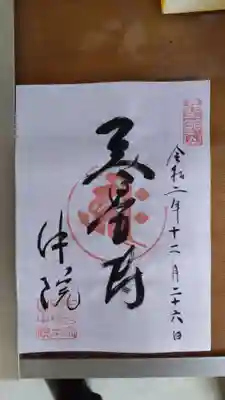 令和二年十二月二十六日
無量寿
中院